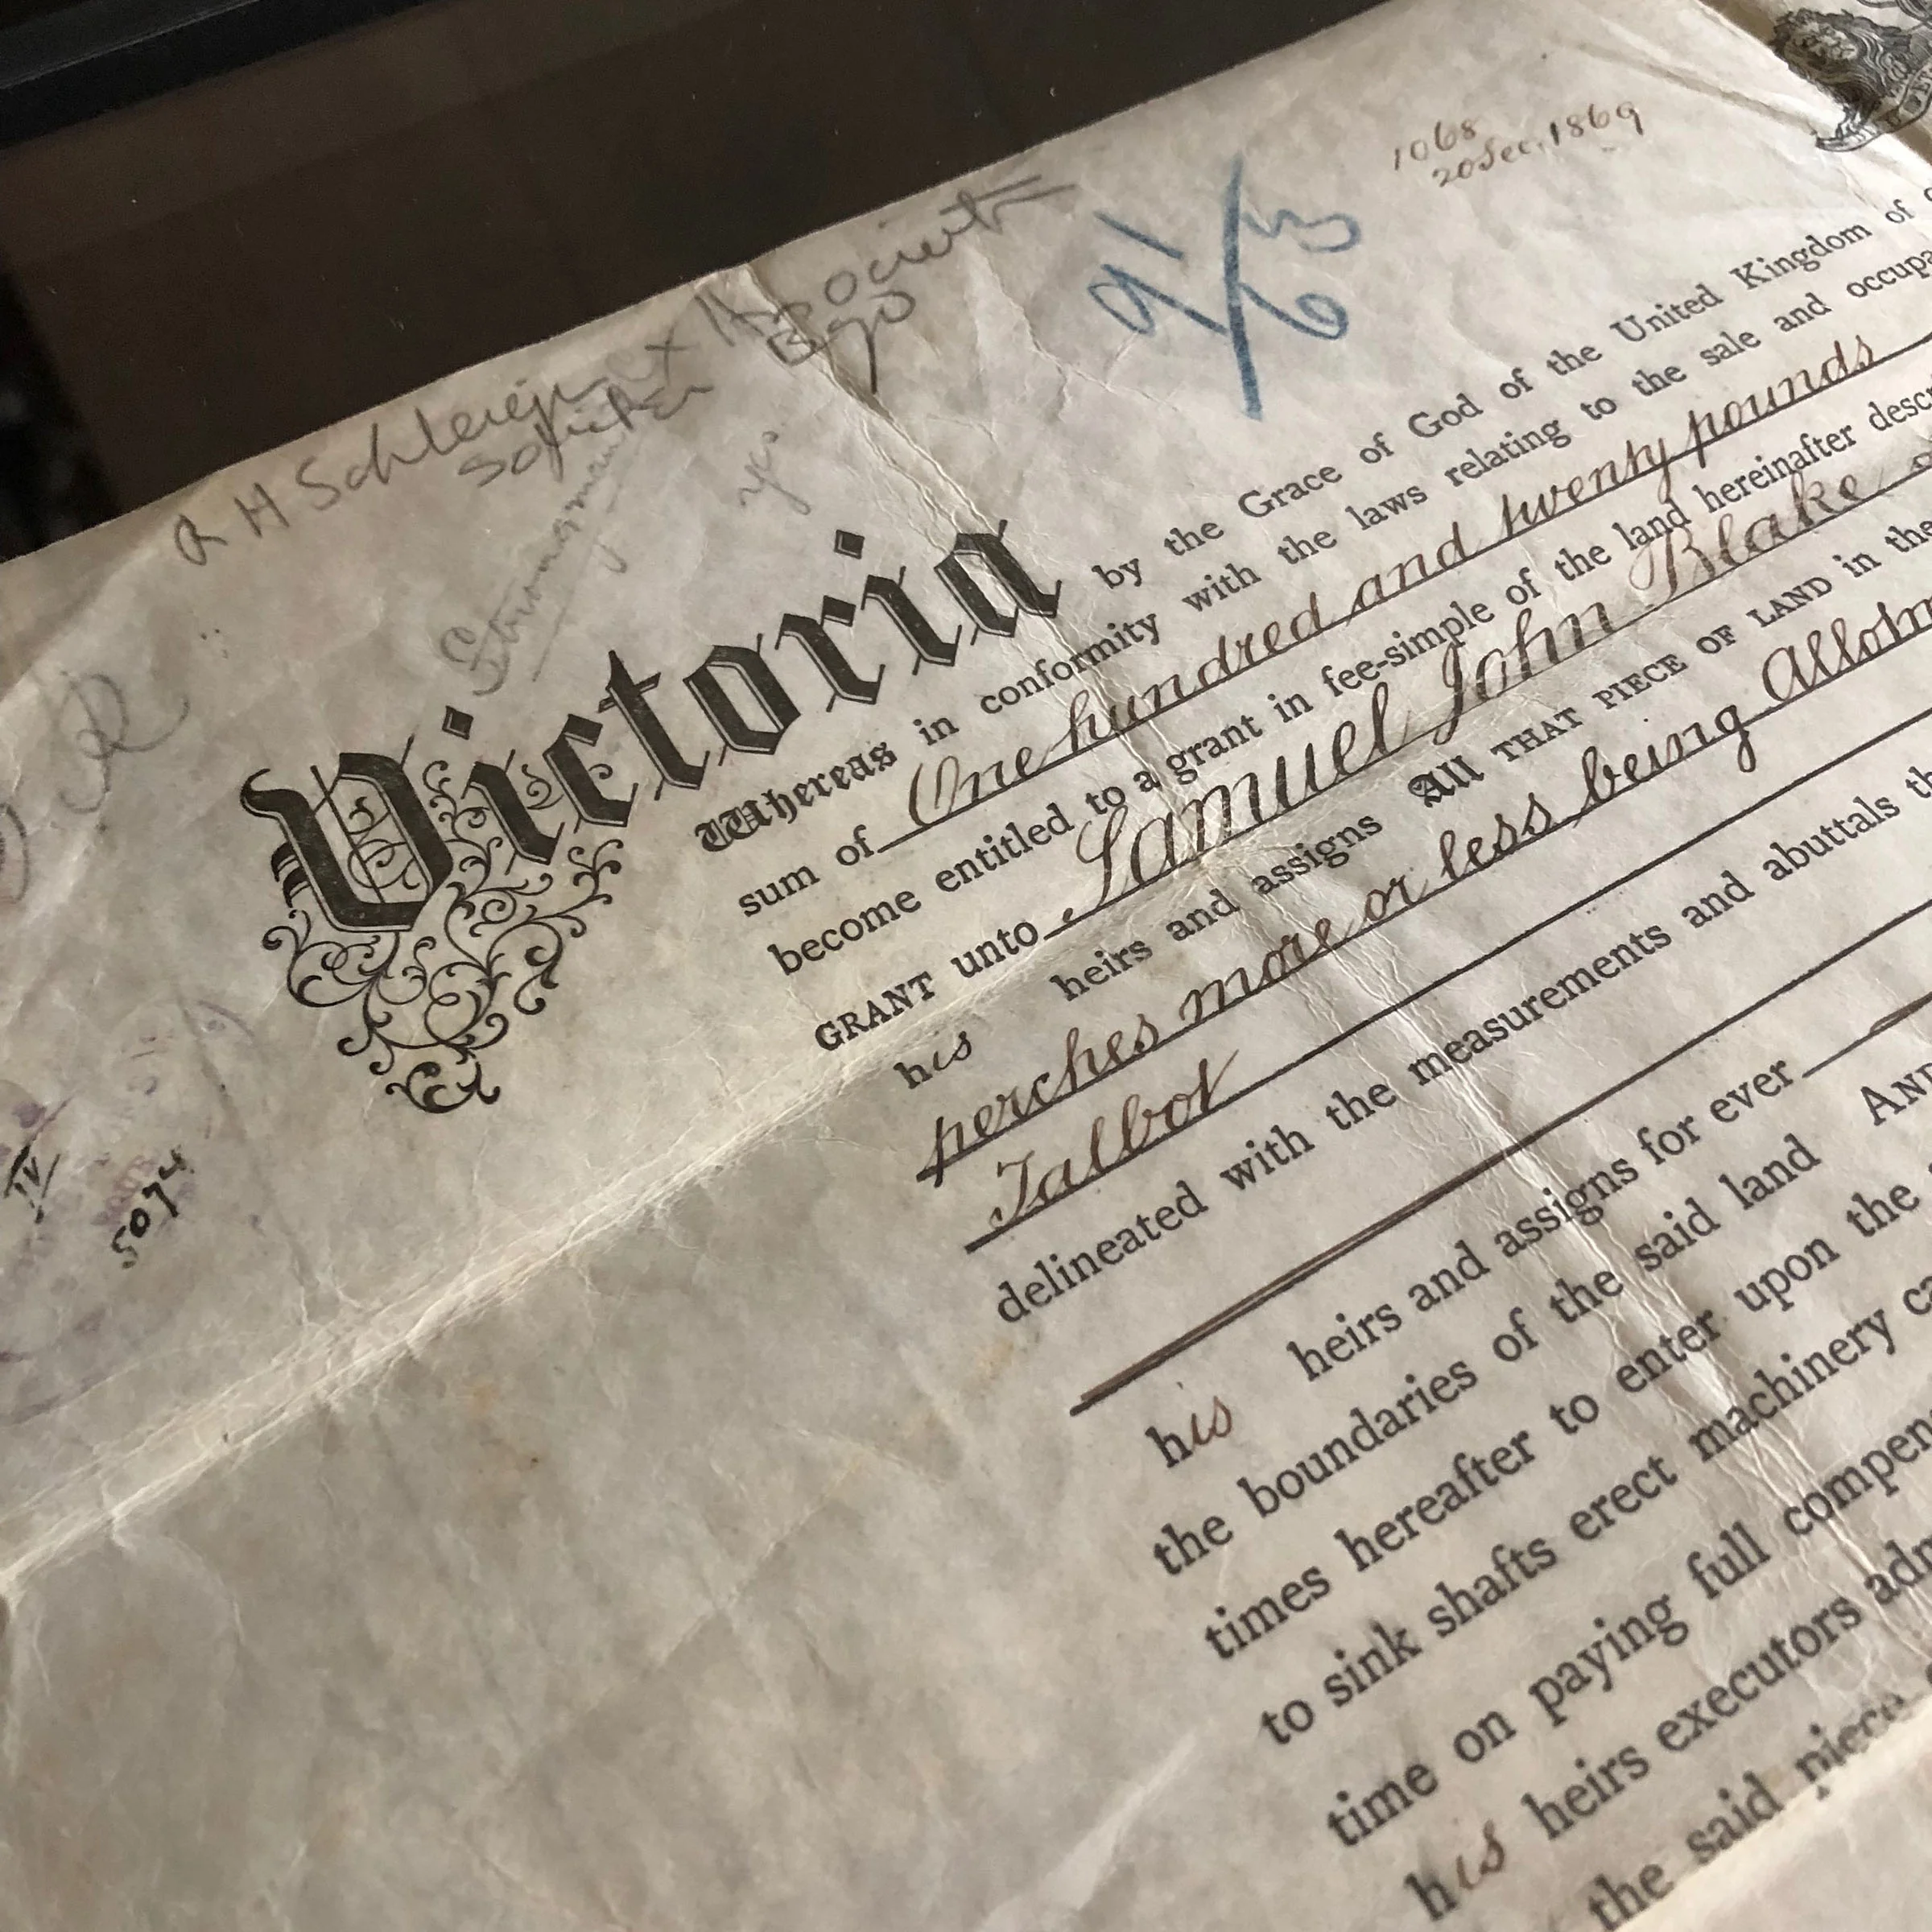 1068
20 Dec. 1869
R H Schleiger & Associates
Solicitor Bgo
yes
Victoria by the Grace of God of the United Kingdom of
Whereas in conformity with the laws relating to the sale and
sum of One hundred and twenty pounds
become entitled to a grant in fee-simple of the land hereinafter
GRANT unto Samuel John Blake
his heirs and assigns All THAT PIECE OF LAND in the
perches more or less being
Talbot
delineated with the measurements and abuttals
his heirs and assigns for ever
the boundaries of the said land AND
times hereafter to enter upon the
to sink shafts erect machinery
time on paying full
his heirs executors
the said piece
IV
5074